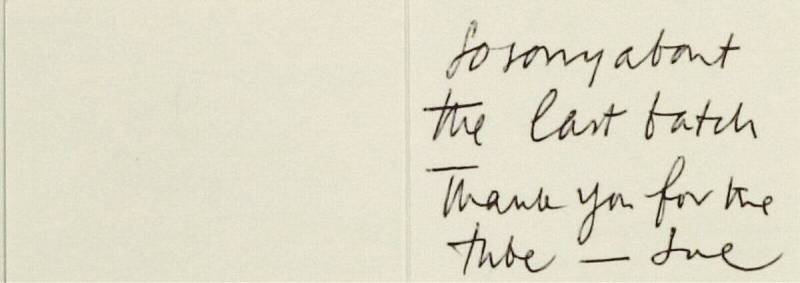 So sorry about
the last batch
Thank you for the
tube — Sue